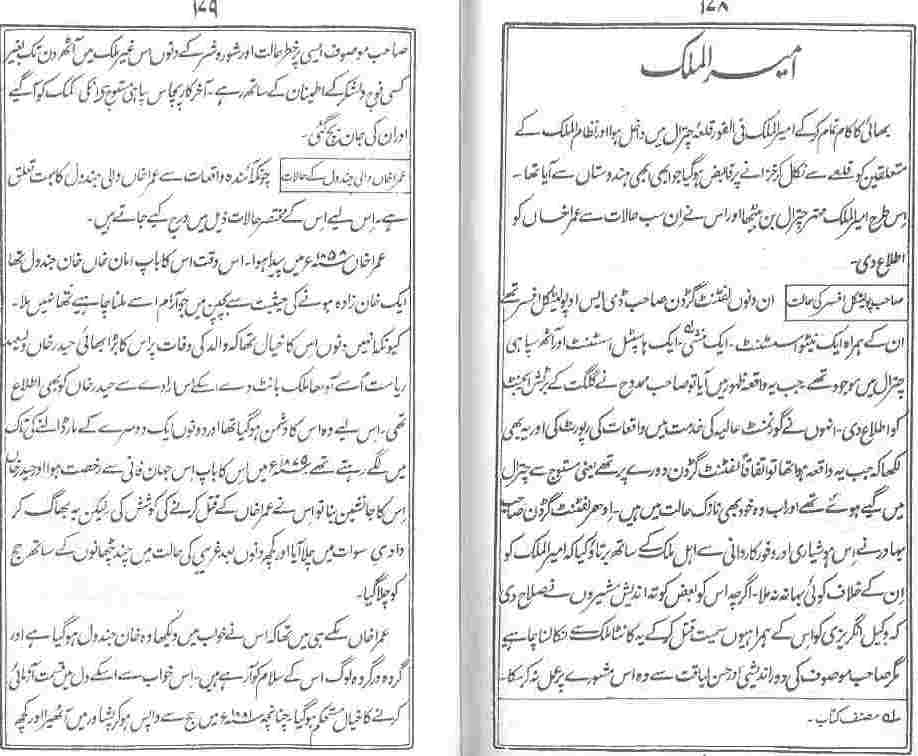 ۱۷۸
امیر الملک
بھائی کا کام تمام کر کے امیر الملک فی الفور قلعہ چترال میں داخل ہوا اور نظام الملک کے
متعلقین کو قلعہ سے نکال کر خزانے پر قابض ہو گیا جو ابھی ابھی ہندوستان سے آیا تھا۔
اس طرح امیر الملک مہتر چترال بن بیٹھا اور اس نے ان سب حالات سے عمرا خان کو
اطلاع دی۔
صاحب پولیٹکل افسر کی حالت ان دنوں لفٹنٹ گرڈن صاحب ڈی ایس او پولیٹکل افسر تھے
ان کے ہمراہ ایک نیٹو اسسٹنٹ۔ ایک منشی ۱ے۔ ایک ہاسپٹل اسسٹنٹ اور آٹھ سپاہی
چترال میں موجود تھے جب یہ واقعہ ظہور میں آیا تو صاحب ممدوح نے گلگت کے برٹش ایجنٹ
کو اطلاع دی۔ انہوں نے گورنمنٹ عالیہ کی خدمت میں واقعات کی رپورٹ کی اور یہ بھی
لکھا کہ جب یہ واقعہ ہوا تھا تو اتفاقاً لفٹنٹ گرڈن دورے پر تھے یعنی مستوج سے چترال
میں گئے ہوئے تھے اور اب وہ خود بھی نازک حالت میں ہیں۔ ادھر لفٹنٹ گرڈن صاحب
بہادر نے اس ہوشیاری اور وفور کاردانی سے اہل ملک کے ساتھ برتاؤ کیا کہ امیر الملک کو
ان کے خلاف کوئی بہانہ نہ ملا۔ اگرچہ اس کو بعض کوتہ اندیش مشیروں نے صلاح دی
کہ وکیل انگریزی کو اس کے ہمراہیوں سمیت قتل کر کے یہ کانٹا ملک سے نکالنا چاہیے
مگر صاحب موصوف کی دور اندیشی اور حسن لیاقت سے وہ اس مشورے پر عمل نہ کر سکا۔
۱ے مصنف کتاب۔
۱۷۹
صاحب موصوف ایسی پرخطر حالت اور شور و شر کے دنوں اس غیر ملک میں آٹھ دن تک بغیر
کسی فوج و لشکر کے اطمینان کے ساتھ رہے۔ آخر کار پچاس سپاہی مستوج سے انکی کمک کو آگئے
اور ان کی جان بچ گئی۔
عمرا خاں والی جندول کے حالات چونکہ آئندہ واقعات سے عمرا خاں والی جندول کا بہت تعلق
ہے۔ اس لیے اس کے مختصر حالات ذیل میں درج کیے جاتے ہیں۔
عمرا خاں ۱۸۵۹ء میں پیدا ہوا۔ اس وقت اس کا باپ امان خاں خان جندول تھا
ایک خان زادہ ہونے کی حیثیت سے بچپن میں جو آرام اسے ملنا چاہیے تھا نہیں ملا۔
کیونکہ انہیں دنوں اس کا خیال تھا کہ والد کی وفات پر اس کا بڑا بھائی حیدر خاں
ریاست اُسے آدھا ملک بانٹ دے اسکے اس ارادے سے حیدر خاں کو بھی اطلاع
تھی۔ اس لیے وہ اس کا دشمن ہو گیا تھا اور دونوں ایک دوسرے کے مار ڈالنے کی تاک
میں لگے رہتے تھے ۱۸۷۹ء میں اس کا باپ اس جہان فانی سے رخصت ہوا اور حیدر خاں
اس کا جانشین بنا تو اس نے عمرا خاں کے قتل کرنے کی کوشش کی لیکن یہ بھاگ کر
وادی سوات میں چلا آیا اور کچھ دنوں بعد غریبی کی حالت میں چند پٹھانوں کے ساتھ حج
کو چلا گیا۔
عمرا خاں مکے ہی میں تھا کہ اس نے خواب میں دیکھا وہ خان جندول ہو گیا ہے اور
گروہ در گروہ لوگ اس کے سلام کو آ رہے ہیں۔ اس خواب سے اسکے دل میں قسمت آزمائی
کرنے کا خیال مستحکم ہو گیا۔ چنانچہ ۱۸۸۱ء میں حج سے واپس ہو کر پشاور میں آ ٹھہرا اور کچھ